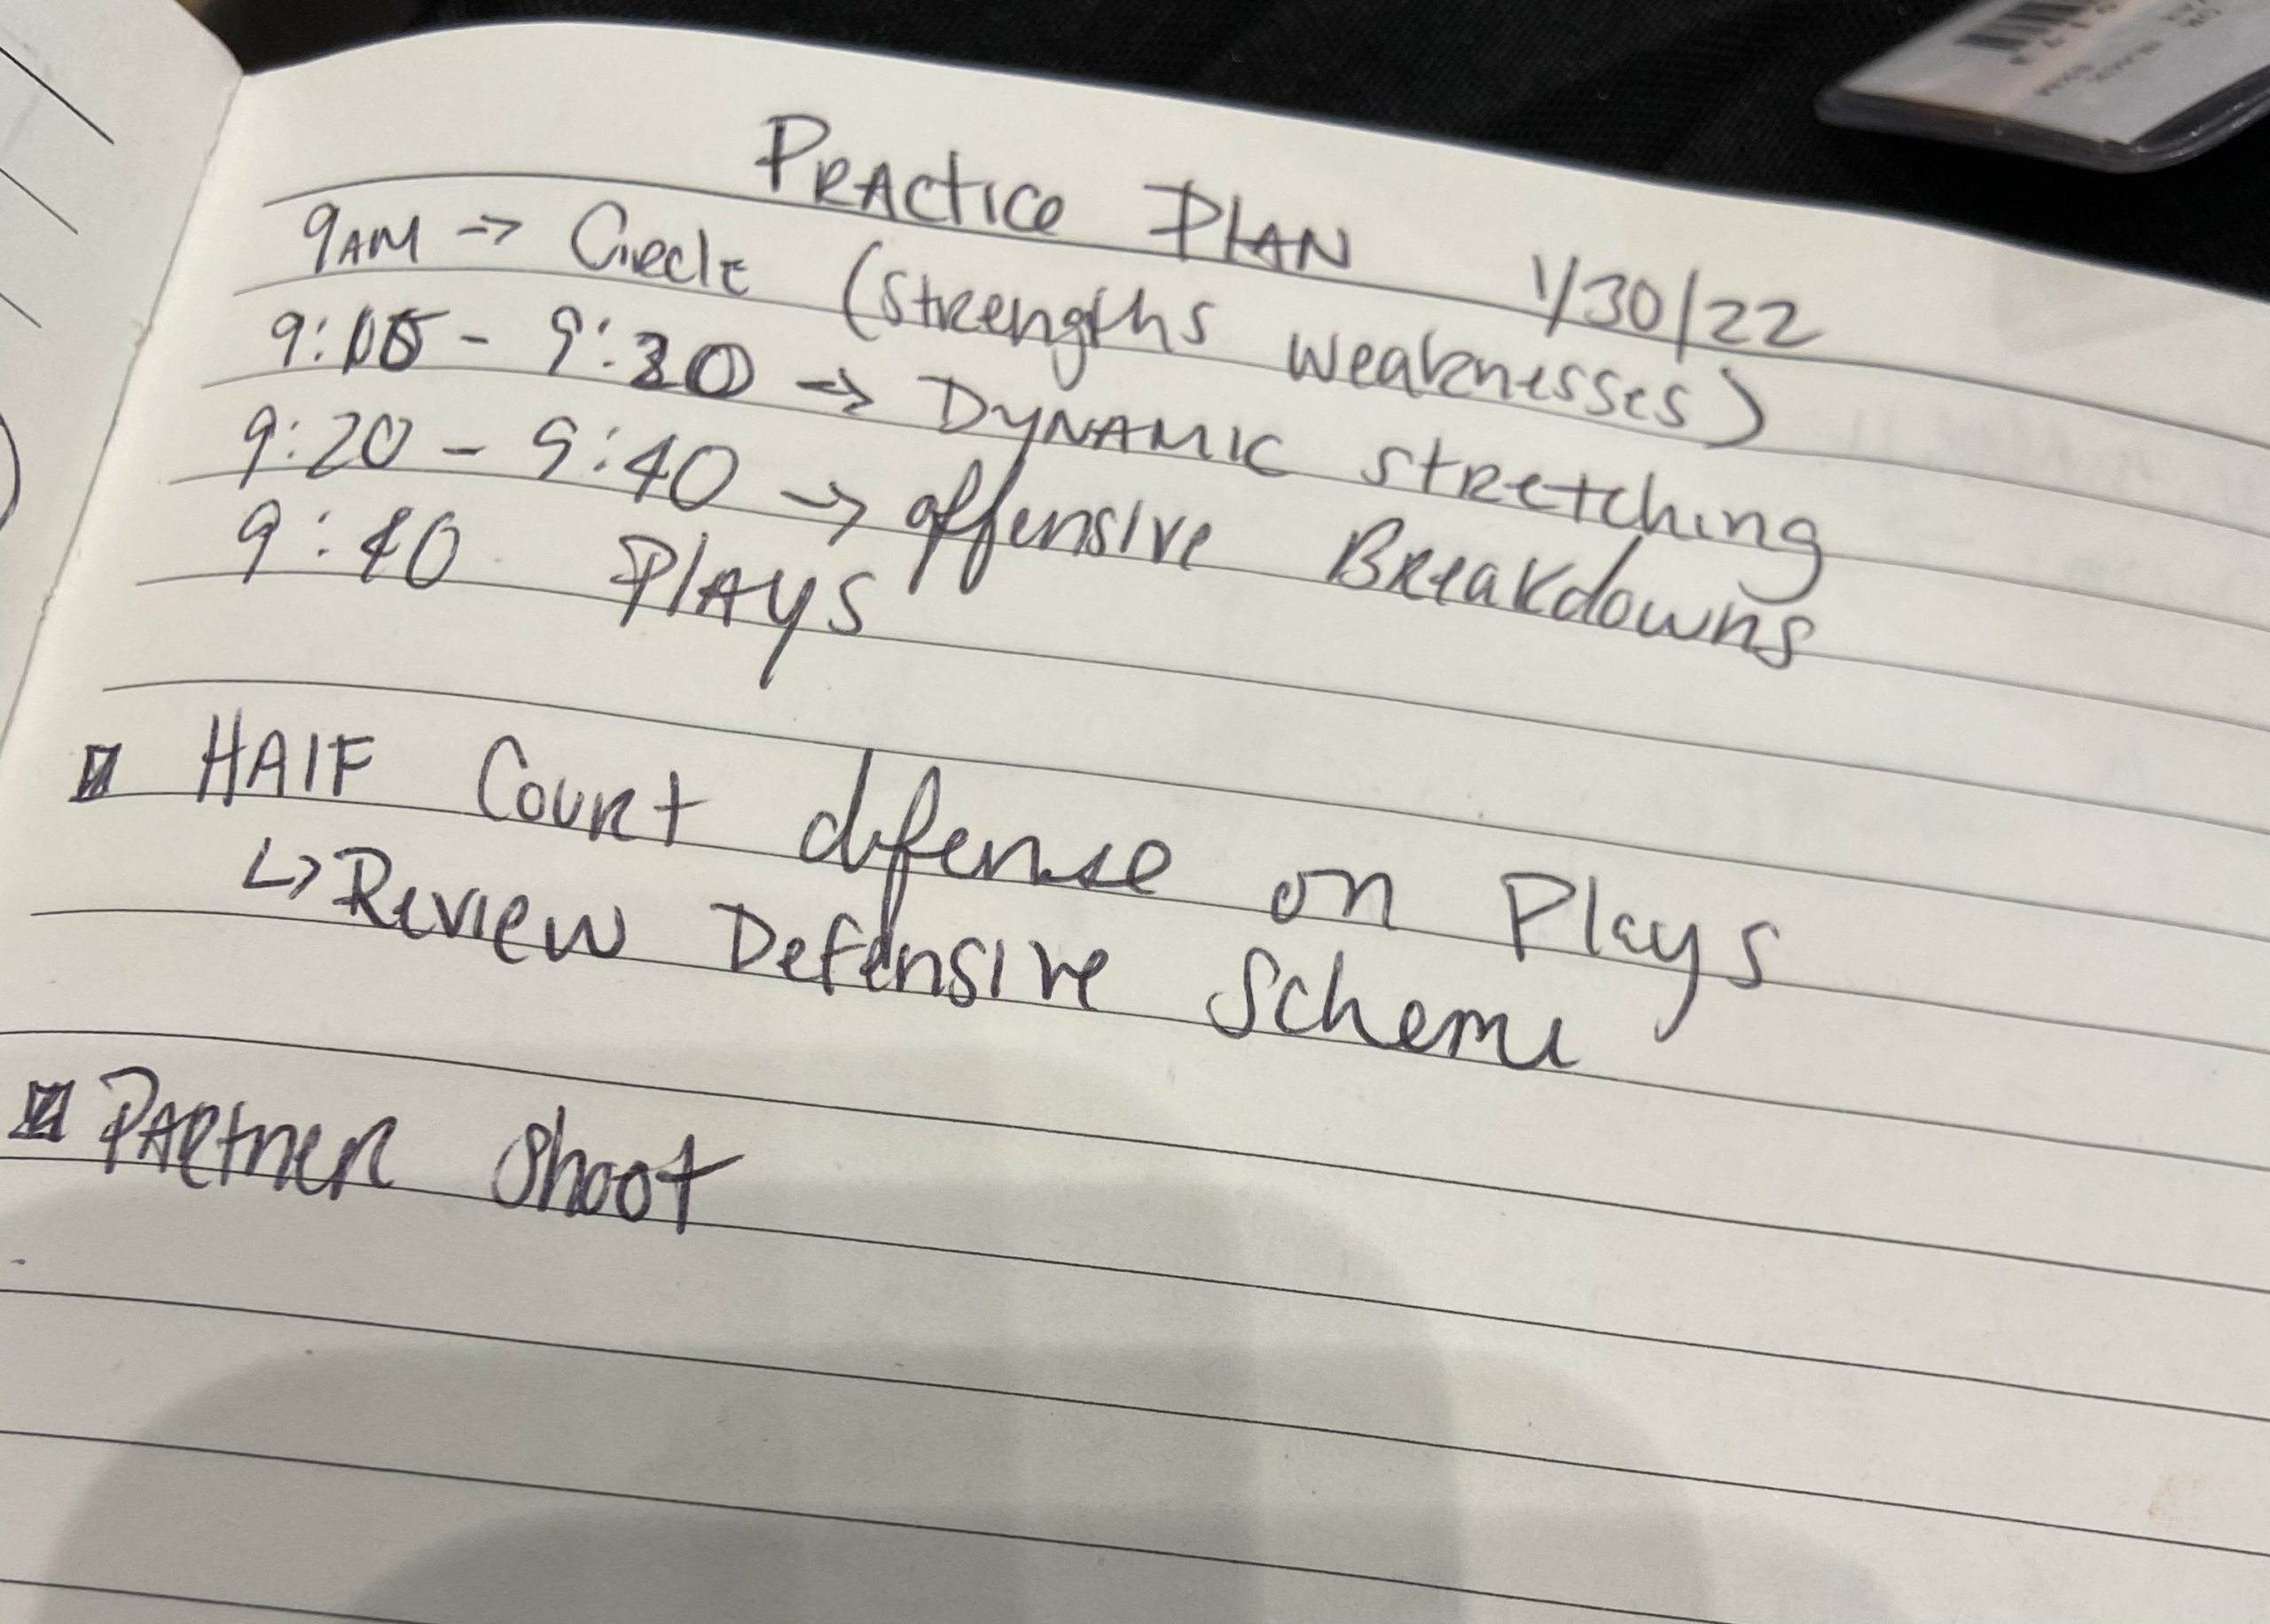 PRACTICE PLAN
1/30/22
9AM → Circle (strengths weaknesses)
9:15 - 9:20 → DYNAMIC stretching
9:20 - 9:40 → offensive Breakdowns
9:40 PLAYS
HAlF Court defense on Plays
↳ Review Defensive Scheme
PARtner shoot